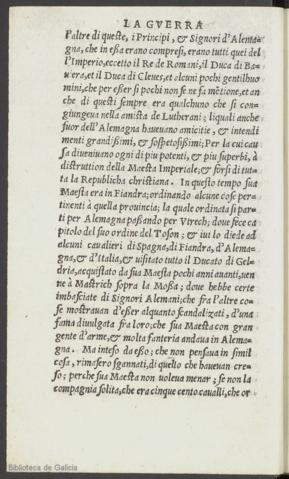 LA GVERRA
l'altre di queste, i Principi, & Signori d'Alema-
gna, che in essa erano compresi, erano tutti quei del
l'Imperio, eccetto il Re de Romani, il Duca di Ba-
uiera, et il Duca di Cleues, et alcuni pochi gentilhuo
mini, che per esser sì pochi non se ne fa mētione, et an
che di questi sempre era qualchuno che si con-
giungeua nella amistà de Lutherani; liquali anche
fuor dell'Alemagna haueuano amicitie, & intendi
menti grandissimi, & sospettosissimi: Per la cui cau
sa diueniuano ogni dì piu potenti, & piu superbi, à
distruttion della Maestà Imperiale, & forsi di tut-
ta la Republicha christiana. In questo tempo sua
Maestà era in Fiandra; ordinando alcune cose per-
tinenti à quella prouincia; la quale ordinata si par-
tì per Alemagna passando per Vtrech; doue fece ca
pitolo del suo ordine del Toson; & iui lo diede ad
alcuni cauallieri di Spagna, di Fiandra, d'Alema-
gna, & d'Italia, & uisitato tutto il Ducato di Gel-
dria, acquistato da sua Maestà pochi anni auanti, uen
ne à Mastrich sopra la Mosa; doue hebbe certe
imbasciate di Signori Alemani; che fra l'altre co-
se mostrauan d'esser alquanto scandalizati, d'una
fama diuulgata fra loro; che sua Maestà con gran
gente d'arme, & molta fanteria andaua in Alema-
gna. Ma inteso da esso; che non pensaua in simil
cosa, rimasero sgannati, di quello che haueuan cre-
so; perche sua Maestà non uoleua menar; se non la
compagnia solita, che era cinque cento caualli, che or
Biblioteca de Galicia